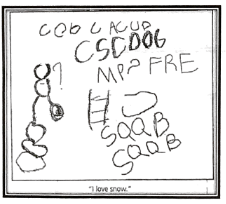 COB C ACUP
CSCDOG
MPP FRE
SQQB
SQQB
"I love snow."